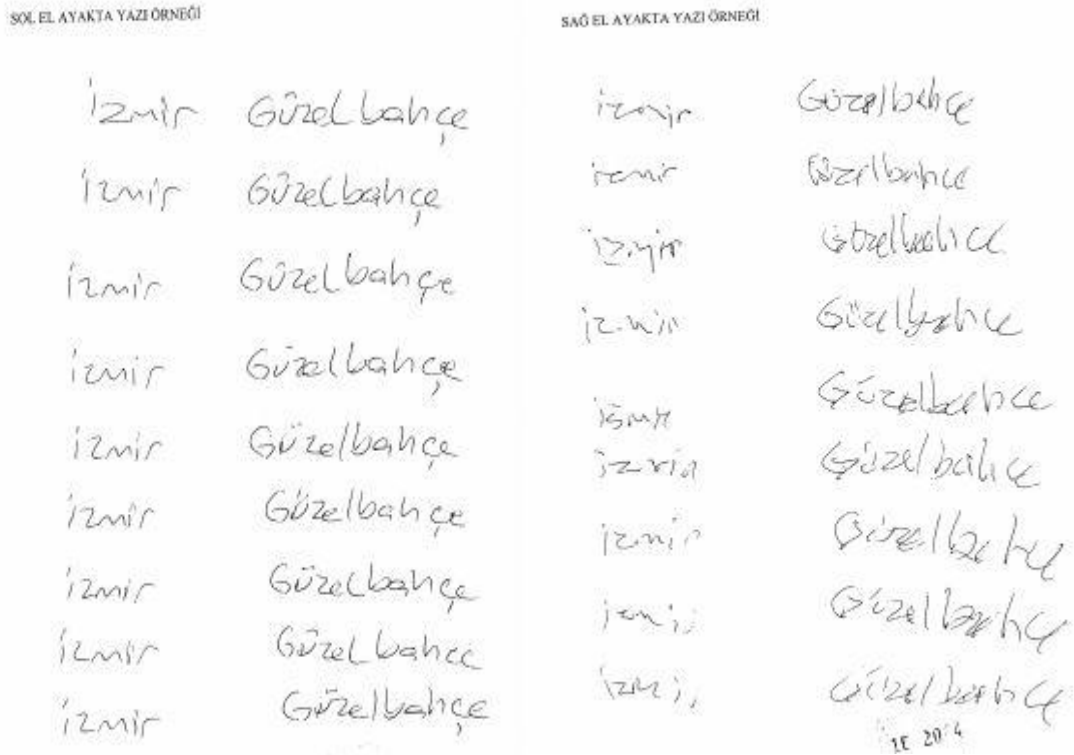 SOL EL AYAKTA YAZI ÖRNEĞİ
izmir Güzelbahçe
izmir Güzelbahçe
izmir Güzelbahçe
izmir Güzelbahçe
izmir Güzelbahçe
izmir Güzelbahçe
izmir Güzelbahçe
izmir Güzelbahce
izmir Güzelbahçe
SAĞ EL AYAKTA YAZI ÖRNEĞİ
izmir Güzelbahçe
izmir Güzelbahce
izmir Güzelbahce
izmir Güzelbahce
izmir Güzelbahce
izmir Güzelbahçe
izmir Güzelbahçe
izmir Güzelbahçe
izmir Güzelbahçe